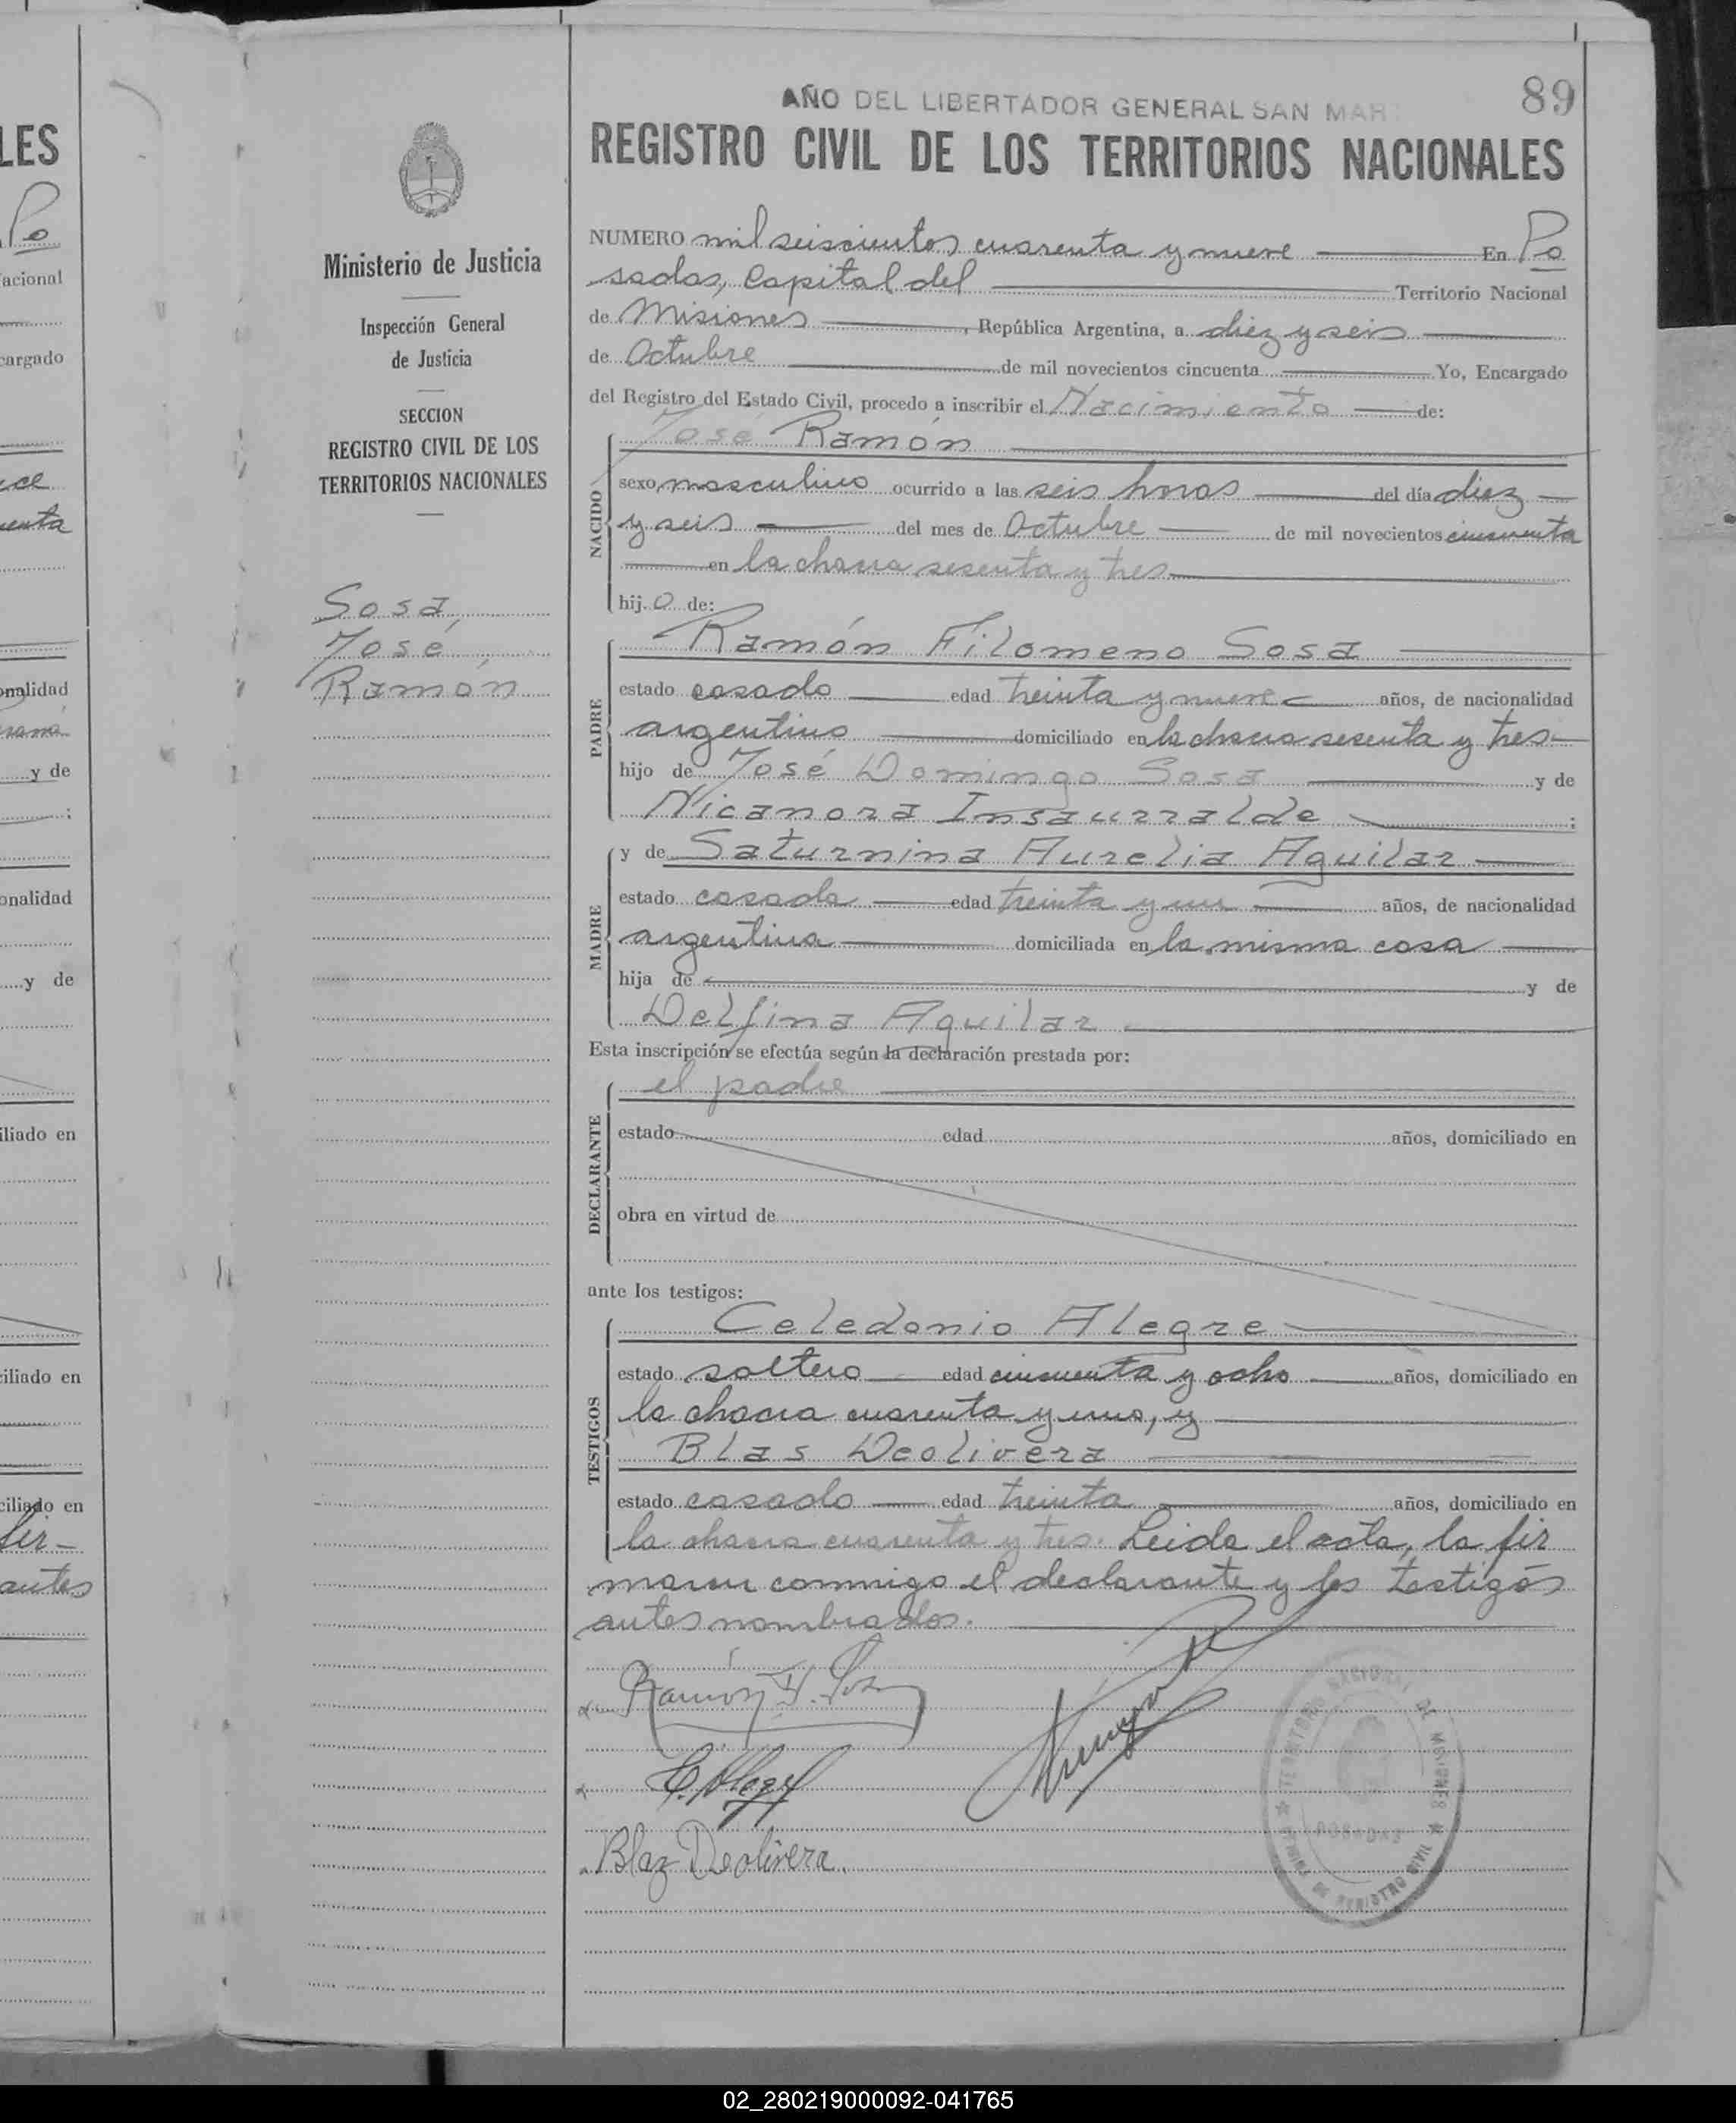 AÑO DEL LIBERTADOR GENERAL SAN MAR
89
REGISTRO CIVIL DE LOS TERRITORIOS NACIONALES
Ministerio de Justicia
Inspección General
de Justicia
SECCION
REGISTRO CIVIL DE LOS
TERRITORIOS NACIONALES
Sosa,
José
Ramón
NUMERO mil seiscientos cuarenta y nueve En Po
sadas, Capital del Territorio Nacional
de Misiones, República Argentina, a diez y seis
de Octubre de mil novecientos cincuenta Yo, Encargado
del Registro del Estado Civil, procedo a inscribir el Nacimiento de:
José Ramón
NACIDO
sexo masculino ocurrido a las seis horas del día diez
y seis del mes de Octubre de mil novecientos cincuenta
en la chacra sesenta y tres
hijo de:
Ramón Filomeno Sosa
PADRE
estado casado edad treinta y nueve años, de nacionalidad
argentino domiciliado en la chacra sesenta y tres
hijo de José Domingo Sosa y de
Nicanora Insaurralde ;
y de Saturnina Aurelia Aguilar
MADRE
estado casada edad treinta y un años, de nacionalidad
argentina domiciliada en la misma casa
hija de y de
Delfina Aguilar
Esta inscripción se efectúa según la declaración prestada por:
el padre
DECLARANTE
estado edad años, domiciliado en
obra en virtud de
ante los testigos:
Celedonio Alegre
TESTIGOS
estado soltero edad cincuenta y ocho años, domiciliado en
la chacra cuarenta y uno, y
Blas Deolivera
estado casado edad treinta años, domiciliado en
la chacra cuarenta y tres. Leida el acta, la fir
maron conmigo el declarante y los testigos
antes nombrados.
Ramón F. Sosa
C. Alegre
Blaz Deolivera.
TERRITORIO NACIONAL DE MISIONES
POSADAS
OFICINA DE REGISTRO CIVIL
LES
Po
acional
cargado
ce
enta
onalidad
y de
;
onalidad
y de
iliado en
ciliado en
ciliado en
fir-
antes
02_280219000092-041765